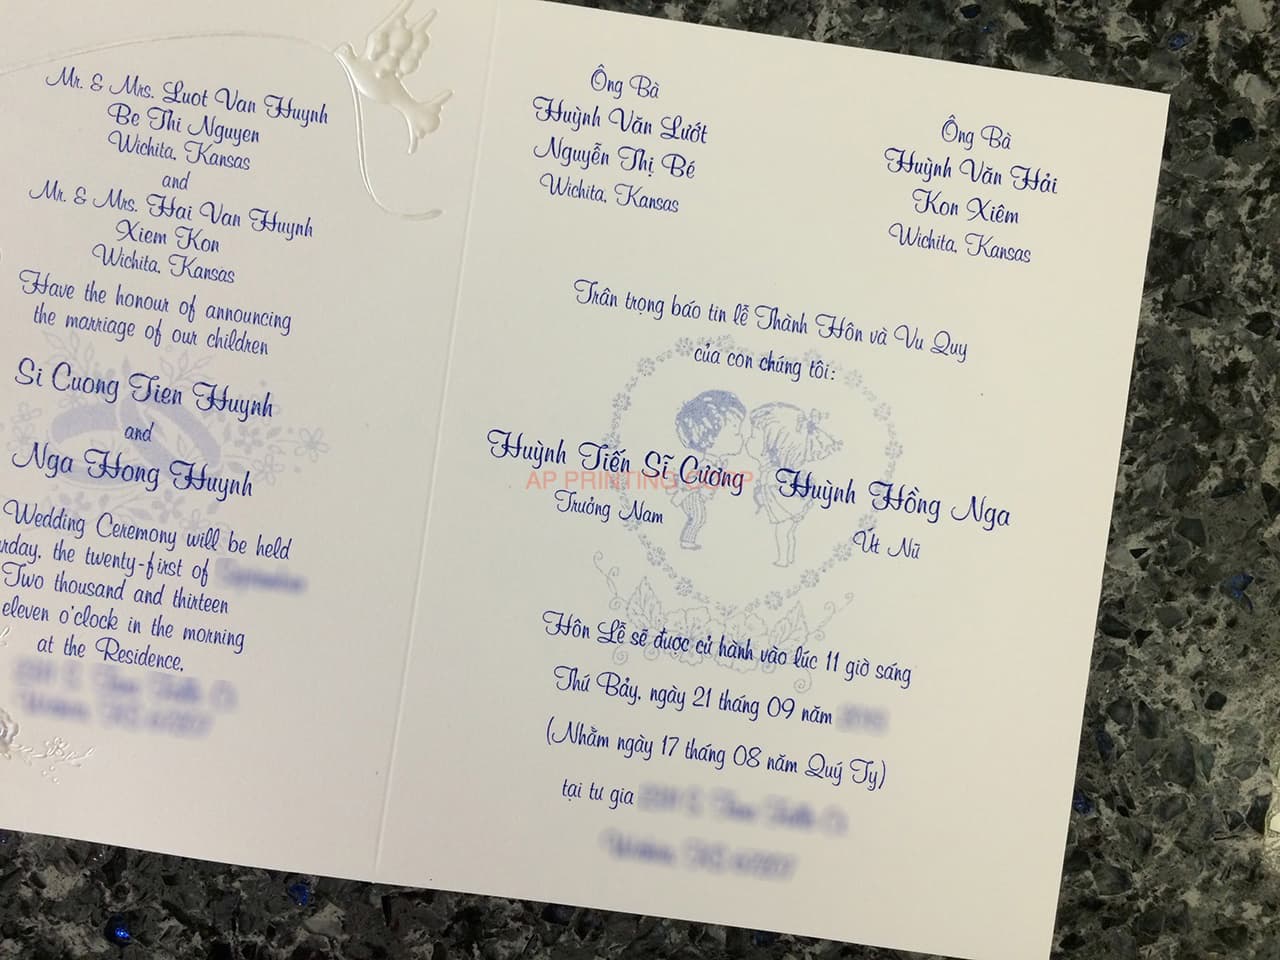 Mr. & Mrs. Luot Van Huynh
Be Thi Nguyen
Wichita, Kansas
and
Mr. & Mrs. Hai Van Huynh
Xiem Kon
Wichita, Kansas
Have the honour of announcing
the marriage of our children
Si Cuong Tien Huynh
and
Nga Hong Huynh
Wedding Ceremony will be held
the twenty-first of
Two thousand and thirteen
eleven o'clock in the morning
at the Residence.
Ông Bà
Huỳnh Văn Lướt
Nguyễn Thị Bé
Wichita, Kansas
Ông Bà
Huỳnh Văn Hải
Kon Xiêm
Wichita, Kansas
Trân trọng báo tin lễ Thành Hôn và Vu Quy
của con chúng tôi:
Huỳnh Tiến Sĩ Cương
Trưởng Nam
Huỳnh Hồng Nga
Út Nữ
AP PRINTING CORP
Hôn Lễ sẽ được cử hành vào lúc 11 giờ sáng
Thứ Bảy, ngày 21 tháng 09 năm
(Nhằm ngày 17 tháng 08 năm Quý Tỵ)
tại tư gia